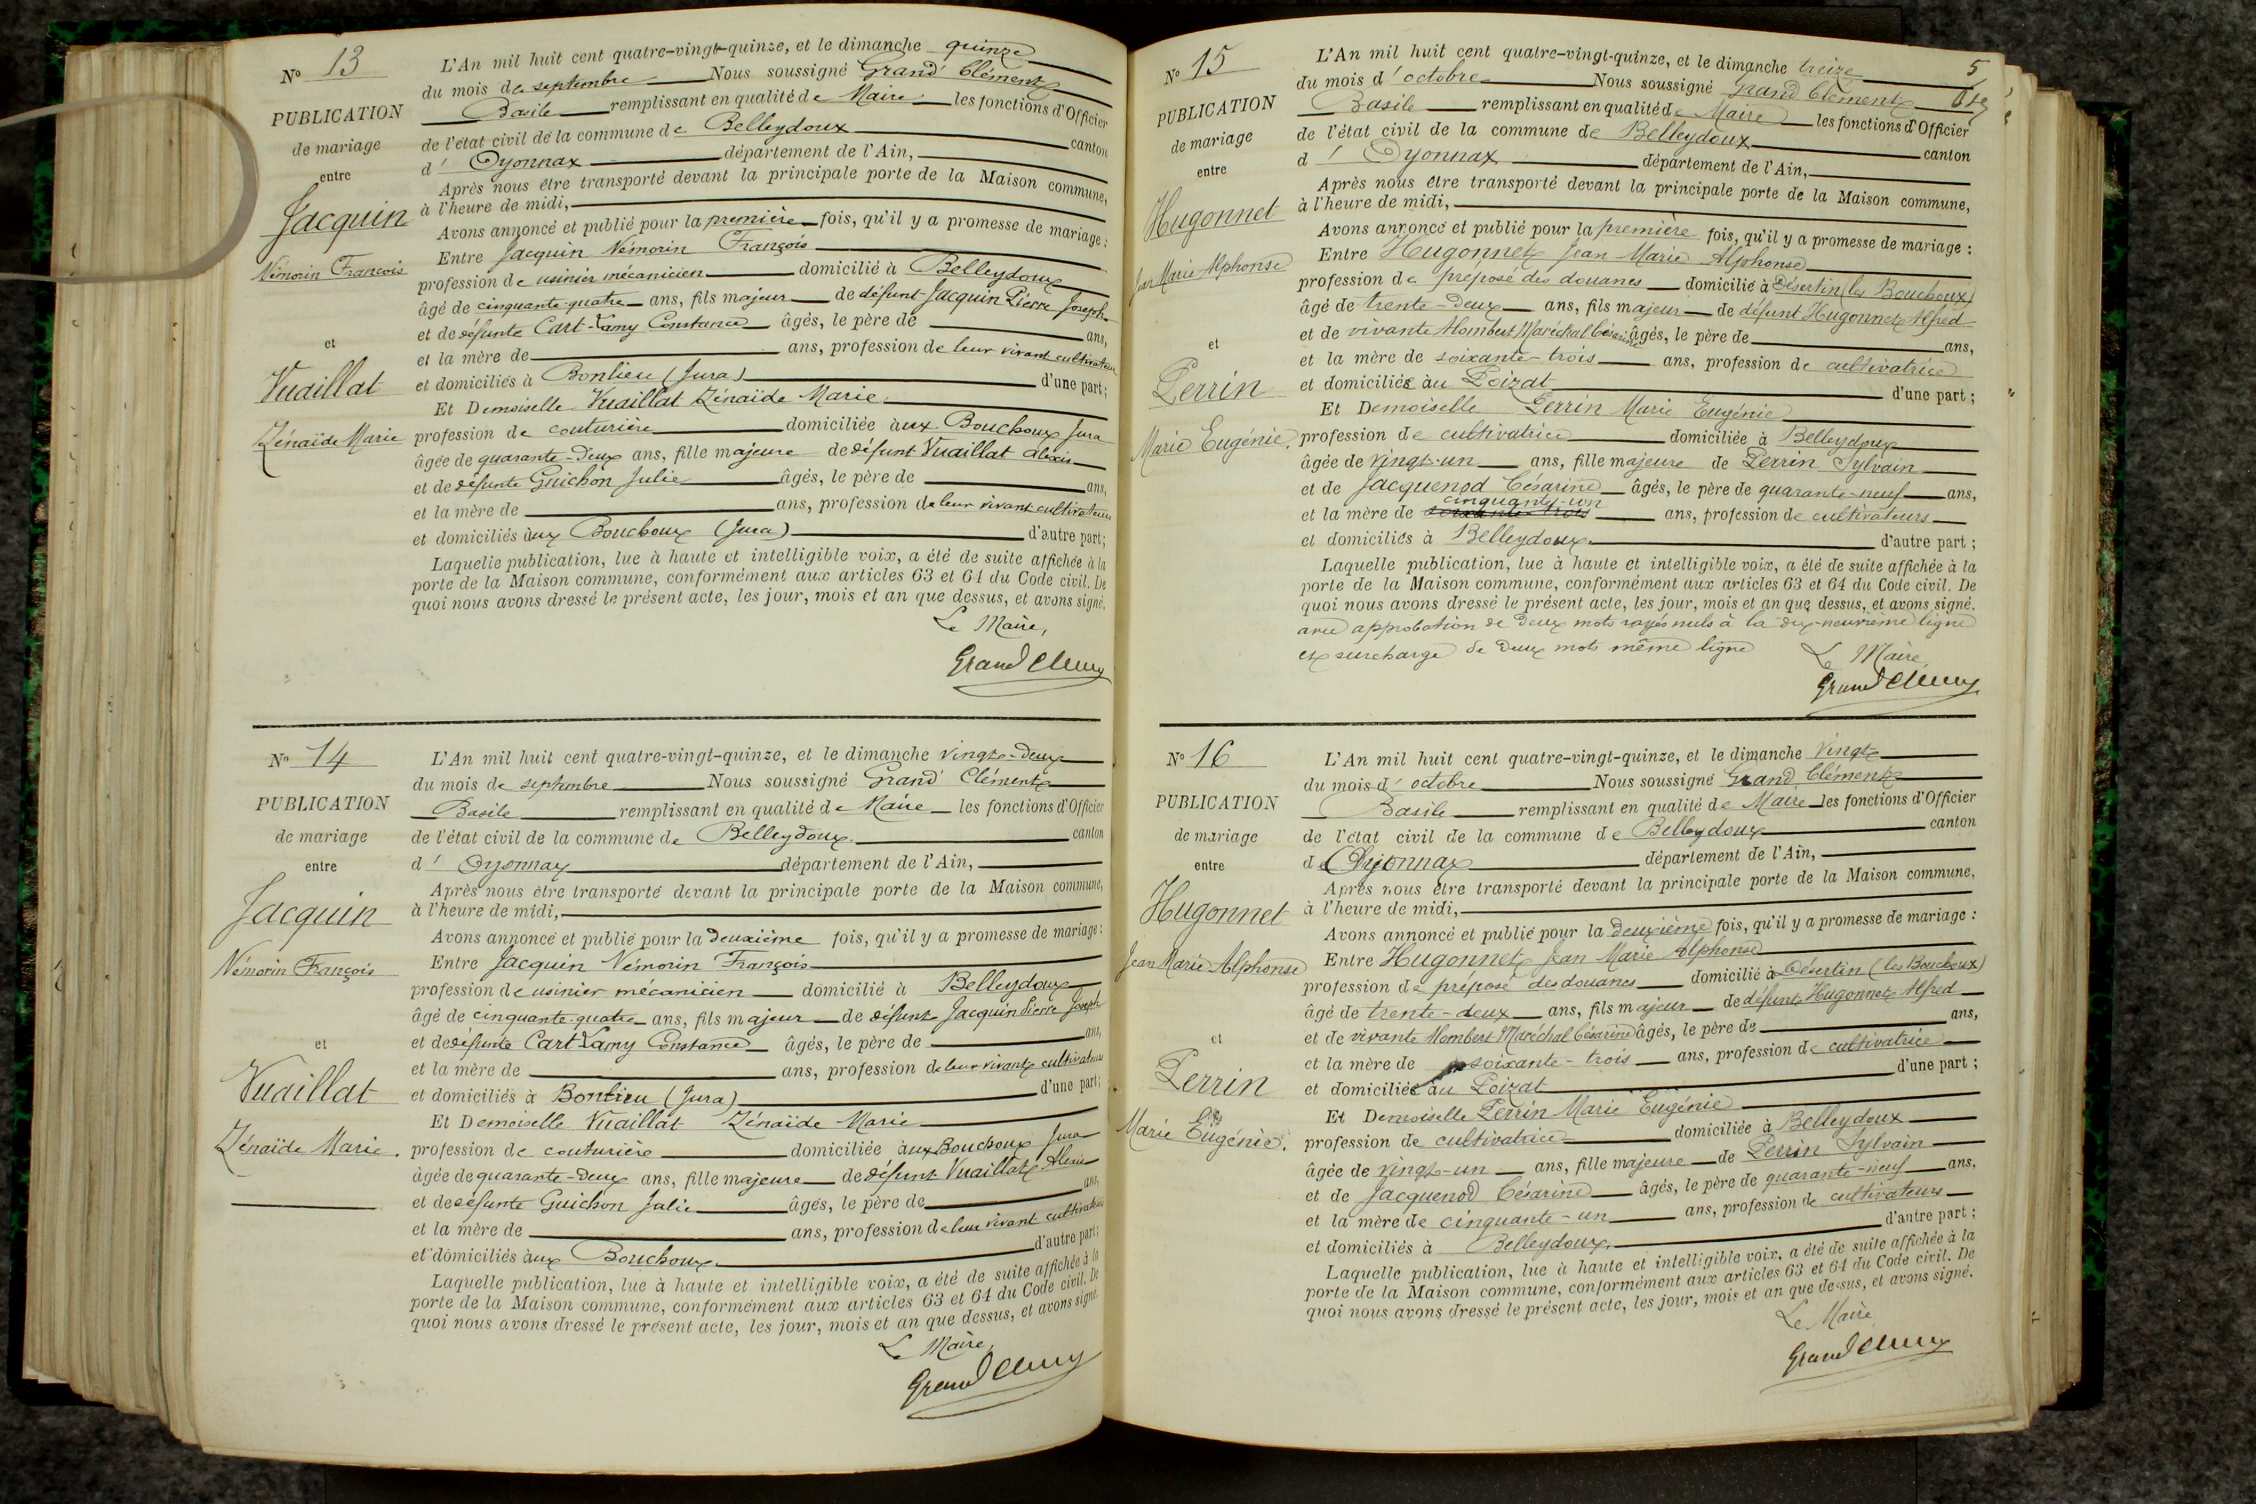 N° 13
PUBLICATION
de mariage
entre
Jacquin
Némorin François
et
Vuaillat
Zénaïde Marie
L'An mil huit cent quatre-vingt-quinze, et le dimanche quinze
du mois de septembre Nous soussigné Grand Clément
Basile remplissant en qualité de Maire les fonctions d'Officier
de l'état civil de la commune de Belleydoux canton
d' Oyonnax département de l'Ain,
Après nous être transporté devant la principale porte de la Maison commune,
à l'heure de midi,
Avons annoncé et publié pour la première fois, qu'il y a promesse de mariage :
Entre Jacquin Némorin François
profession de usinier mécanicien domicilié à Belleydoux
âgé de cinquante-quatre ans, fils majeur de défunt Jacquin Pierre Joseph
et de défunte Cart-Lamy Constance âgés, le père de ans,
et la mère de ans, profession de leur vivant cultivateurs
et domiciliés à Bonlieu (Jura) d'une part ;
Et Demoiselle Vuaillat Zénaïde Marie
profession de couturière domiciliée aux Bouchoux Jura
âgée de quarante-deux ans, fille majeure de défunt Vuaillat Alexis
et de défunte Guichon Julie âgés, le père de ans,
et la mère de ans, profession de leur vivant cultivateurs
et domiciliés aux Bouchoux (Jura) d'autre part ;
Laquelle publication, lue à haute et intelligible voix, a été de suite affichée à la
porte de la Maison commune, conformément aux articles 63 et 64 du Code civil. De
quoi nous avons dressé le présent acte, les jour, mois et an que dessus, et avons signé.
Le Maire,
Grand Clément
N° 14
PUBLICATION
de mariage
entre
Jacquin
Némorin François
et
Vuaillat
Zénaïde Marie.
L'An mil huit cent quatre-vingt-quinze, et le dimanche vingt-deux
du mois de septembre Nous soussigné Grand Clément
Basile remplissant en qualité de Maire les fonctions d'Officier
de l'état civil de la commune de Belleydoux canton
d' Oyonnax département de l'Ain,
Après nous être transporté devant la principale porte de la Maison commune,
à l'heure de midi,
Avons annoncé et publié pour la deuxième fois, qu'il y a promesse de mariage :
Entre Jacquin Némorin François
profession de usinier mécanicien domicilié à Belleydoux
âgé de cinquante-quatre ans, fils majeur de défunt Jacquin Pierre Joseph
et de défunte Cart-Lamy Constance âgés, le père de ans,
et la mère de ans, profession de leur vivant cultivateurs
et domiciliés à Bonlieu (Jura) d'une part ;
Et Demoiselle Vuaillat Zénaïde Marie
profession de couturière domiciliée aux Bouchoux Jura
âgée de quarante-deux ans, fille majeure de défunt Vuaillat Alexis
et de défunte Guichon Julie âgés, le père de ans,
et la mère de ans, profession de leur vivant cultivateurs
et domiciliés aux Bouchoux d'autre part ;
Laquelle publication, lue à haute et intelligible voix, a été de suite affichée à la
porte de la Maison commune, conformément aux articles 63 et 64 du Code civil. De
quoi nous avons dressé le présent acte, les jour, mois et an que dessus, et avons signé.
Le Maire,
Grand Clément
5
N° 15
PUBLICATION
de mariage
entre
Hugonnet
Jean Marie Alphonse
et
Perrin
Marie Eugénie.
L'An mil huit cent quatre-vingt-quinze, et le dimanche treize
du mois d'octobre Nous soussigné Grand Clément
Basile remplissant en qualité de Maire les fonctions d'Officier
de l'état civil de la commune de Belleydoux canton
d' Oyonnax département de l'Ain,
Après nous être transporté devant la principale porte de la Maison commune,
à l'heure de midi,
Avons annoncé et publié pour la première fois, qu'il y a promesse de mariage :
Entre Hugonnet Jean Marie Alphonse
profession de préposé des douanes domicilié à Désertin (les Bouchoux)
âgé de trente-deux ans, fils majeur de défunt Hugonnet Alfred
et de vivante Mombert Maréchal Césarine âgés, le père de ans,
et la mère de soixante-trois ans, profession de cultivatrice
et domiciliée au Poizat d'une part ;
Et Demoiselle Perrin Marie Eugénie
profession de cultivatrice domiciliée à Belleydoux
âgée de vingt-un ans, fille majeure de Perrin Sylvain
et de Jacquenod Césarine âgés, le père de quarante-neuf ans,
cinquante-un
et la mère de soixante trois ans, profession de cultivateurs
et domiciliés à Belleydoux. d'autre part ;
Laquelle publication, lue à haute et intelligible voix, a été de suite affichée à la
porte de la Maison commune, conformément aux articles 63 et 64 du Code civil. De
quoi nous avons dressé le présent acte, les jour, mois et an que dessus, et avons signé.
avec approbation de deux mots rayés nuls à la dix-neuvième ligne
et surcharge de deux mots même ligne
Le Maire,
Grand Clément
N° 16
PUBLICATION
de mariage
entre
Hugonnet
Jean Marie Alphonse
et
Perrin
Marie Eugénie.
L'An mil huit cent quatre-vingt-quinze, et le dimanche vingt
du mois d'octobre Nous soussigné Grand Clément
Basile remplissant en qualité de Maire les fonctions d'Officier
de l'état civil de la commune de Belleydoux canton
d' Oyonnax département de l'Ain,
Après nous être transporté devant la principale porte de la Maison commune,
à l'heure de midi,
Avons annoncé et publié pour la deuxième fois, qu'il y a promesse de mariage :
Entre Hugonnet Jean Marie Alphonse
profession de préposé des douanes domicilié à Désertin (les Bouchoux)
âgé de trente-deux ans, fils majeur de défunt Hugonnet Alfred
et de vivante Mombert Maréchal Césarine âgés, le père de ans,
et la mère de soixante-trois ans, profession de cultivatrice
et domiciliée au Poizat d'une part ;
Et Demoiselle Perrin Marie Eugénie
profession de cultivatrice domiciliée à Belleydoux
âgée de vingt-un ans, fille majeure de Perrin Sylvain
et de Jacquenod Césarine âgés, le père de quarante-neuf ans,
et la mère de cinquante-un ans, profession de cultivateurs
et domiciliés à Belleydoux. d'autre part ;
Laquelle publication, lue à haute et intelligible voix, a été de suite affichée à la
porte de la Maison commune, conformément aux articles 63 et 64 du Code civil. De
quoi nous avons dressé le présent acte, les jour, mois et an que dessus, et avons signé.
Le Maire
Grand Clément